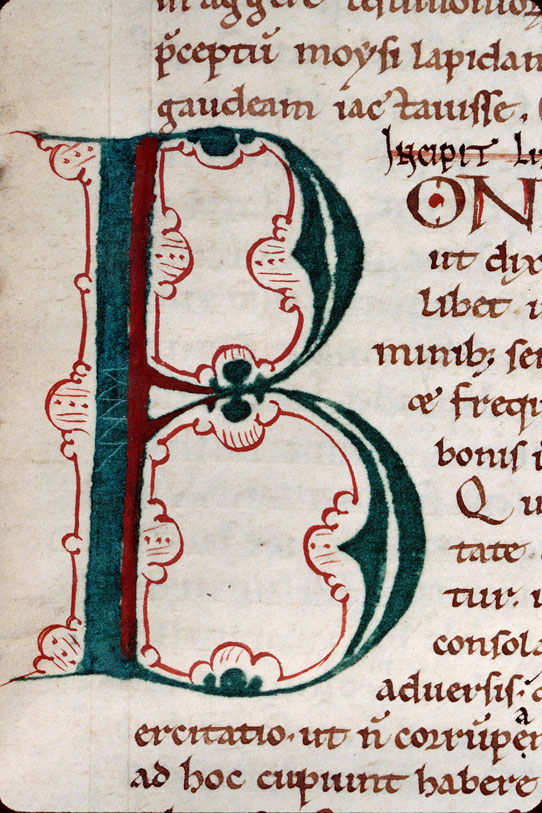 in aggere testimonior
p̄ceptū moysi lapidan
gaudeam iactauisse.
Incipit Li
BON
ut dix
libet.
minib; ser
æ frequ
bonis i
Qu
tate.
tur. u
consola
aduersis.
ercitatio. ut ñ corrūper
a
ad hoc cupiunt habere